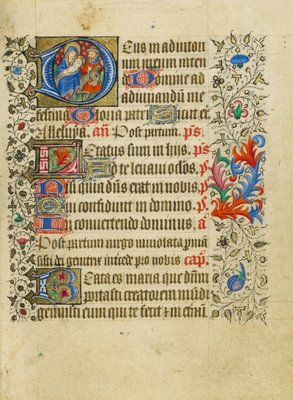 Deus in adiutori
um meum inten
de Domine ad
adiuuandum me
festina Gloria patri Sicut er
Alleluya. añ Post partum. ps
Letatus sum in hijs. ps
Ad te leuaui oclos. ps
Nisi quia dñs erat in nobis. ps
Qui confidunt in domino. ps
In conuertendo dominus. a
Post partum uirgo inuiolata pman
sisti dei genitrix intcede pro nobis cap.
Beata es maria que dñm
portasti creatorem mũdi
genuisti eum qui te fecit et in eternũ